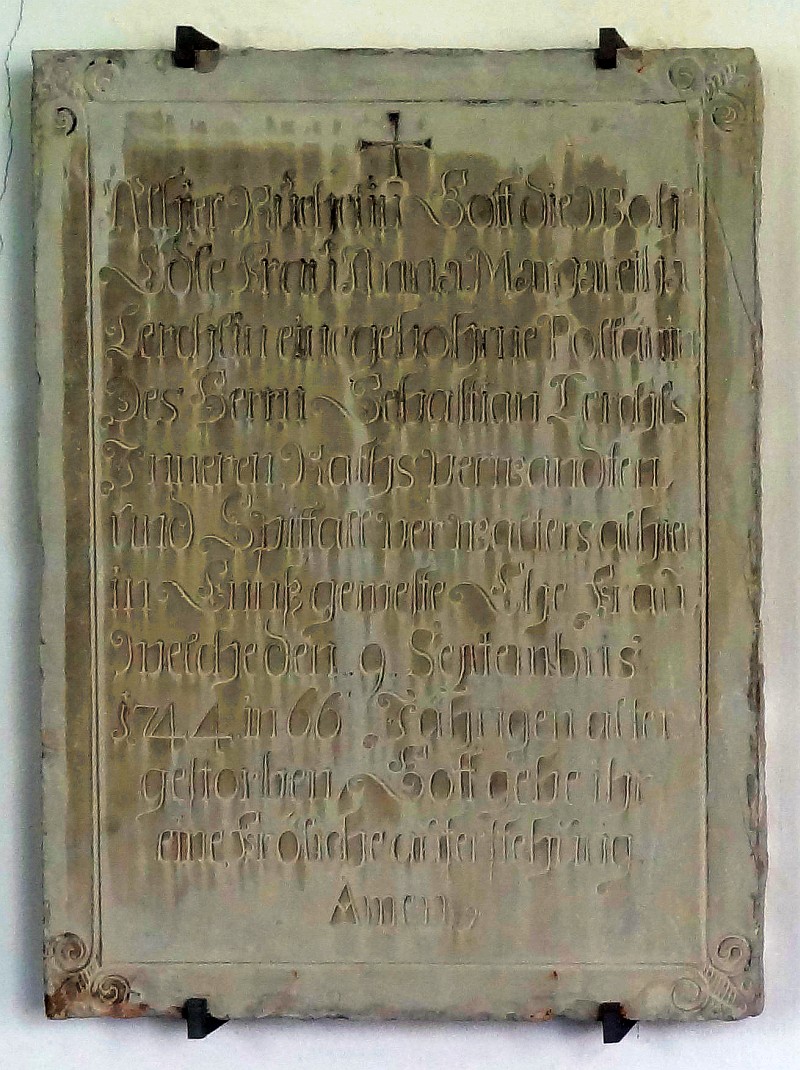 Alhier Ruehet in Gott die Wohl
Edle Frau Anna Margaretha
Lerchlin eine gebohrne
Des Herrn Sebastian Lerchls
Inneren Raths verwandten,
und Spittall verwalters alhier
in geweste Ehe Frau,
welche den 9 Septembris
1744 in 66 Jährigen alter
gestorben, Gott gebe ihr
eine Fröliche auferstehung
Amen